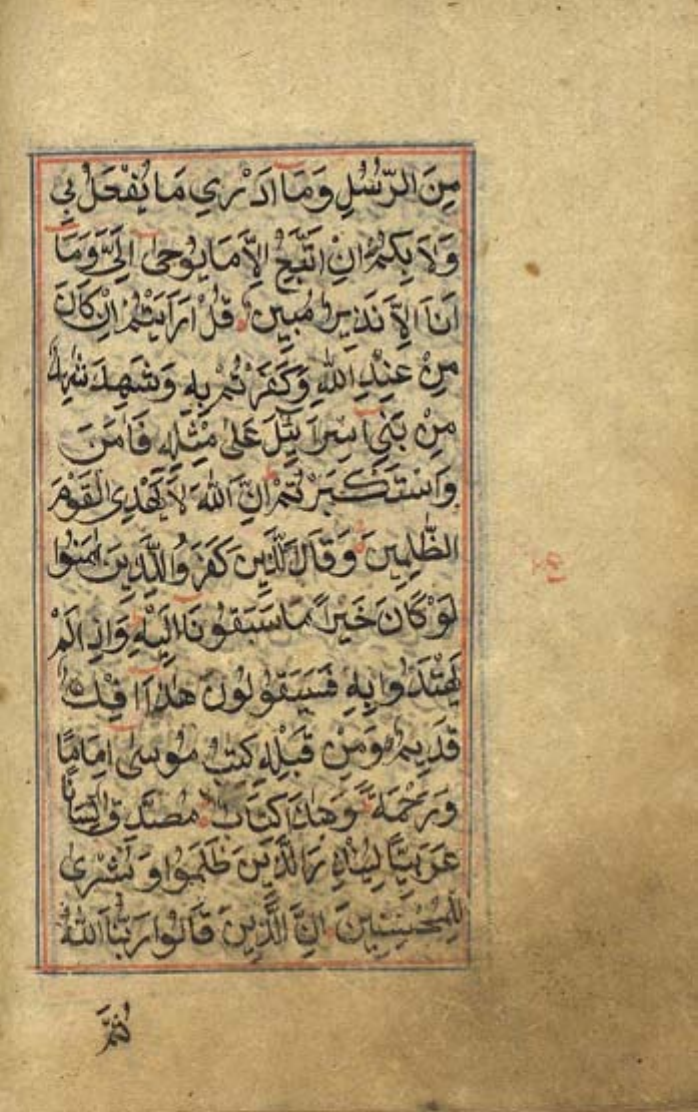 مِنَ الرُّسُلِ وَمَآ اَدْرِي مَا يُفْعَلُ بِي
وَلَا بِكُمْ اِنْ اَتَّبِعُ اِلَّا مَا يُوحىٰ اِلَيَّ وَمَآ
اَنَا۠ اِلَّا نَذِيرٌ مُبِينٌ قُلْ اَرَاَيْتُمْ اِنْ كَانَ
مِنْ عِنْدِ اللّٰهِ وَكَفَرْتُمْ بِهِ وَشَهِدَ شَاهِدٌ
مِنْ بَنِيٓ اِسْرَآئِيلَ عَلىٰ مِثْلِهِ فَاٰمَنَ
وَاسْتَكْبَرْتُمْ اِنَّ اللّٰهَ لَا يَهْدِي الْقَوْمَ
الظّٰلِمِينَ وَقَالَ الَّذِينَ كَفَرُوا لِلَّذِينَ اٰمَنُوا
لَوْ كَانَ خَيْراً مَا سَبَقُونَآ اِلَيْهِ وَاِذْ لَمْ
يَهْتَدُوا بِهِ فَسَيَقُولُونَ هٰذَآ اِفْكٌ
قَدِيمٌ وَمِنْ قَبْلِهِ كِتٰبُ مُوسىٰ اِمَامًا
وَرَحْمَةً وَهٰذَا كِتَابٌ مُصَدِّقٌ لِسَانًا
عَرَبِيًّا لِيُنْذِرَ الَّذِينَ ظَلَمُوا وَبُشْرىٰ
لِلْمُحْسِنِينَ اِنَّ الَّذِينَ قَالُوا رَبُّنَا اللّٰهُ
ثُمَّ